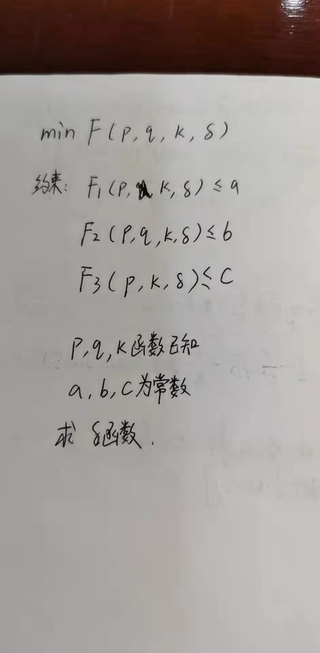 min F(p,q,k,δ)
约束: F₁(p, k,δ)≤a
F₂(p,q,k,δ)≤b
F₃(p,k,δ)≤c
p,q,k函数已知
a,b,c为常数
求 δ函数.